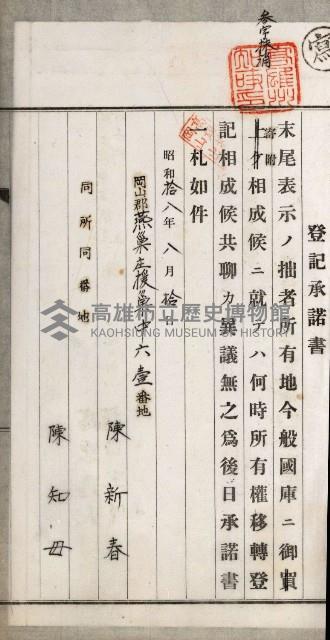 寫
參字抹消
登記承諾書
末尾表示ノ拙者所有地今般國庫ニ御買
寄附
上ケ相成候ニ就テハ何時所有權移轉登
記相成候共聊カ異議無之爲後日承諾書
一札如件
昭和拾八年八月拾日
岡山郡燕巢庄援巢中六壹番地
陳新春
同所同番地
陳知母
高雄市立歷史博物館
KAOHSIUNG MUSEUM OF HISTORY